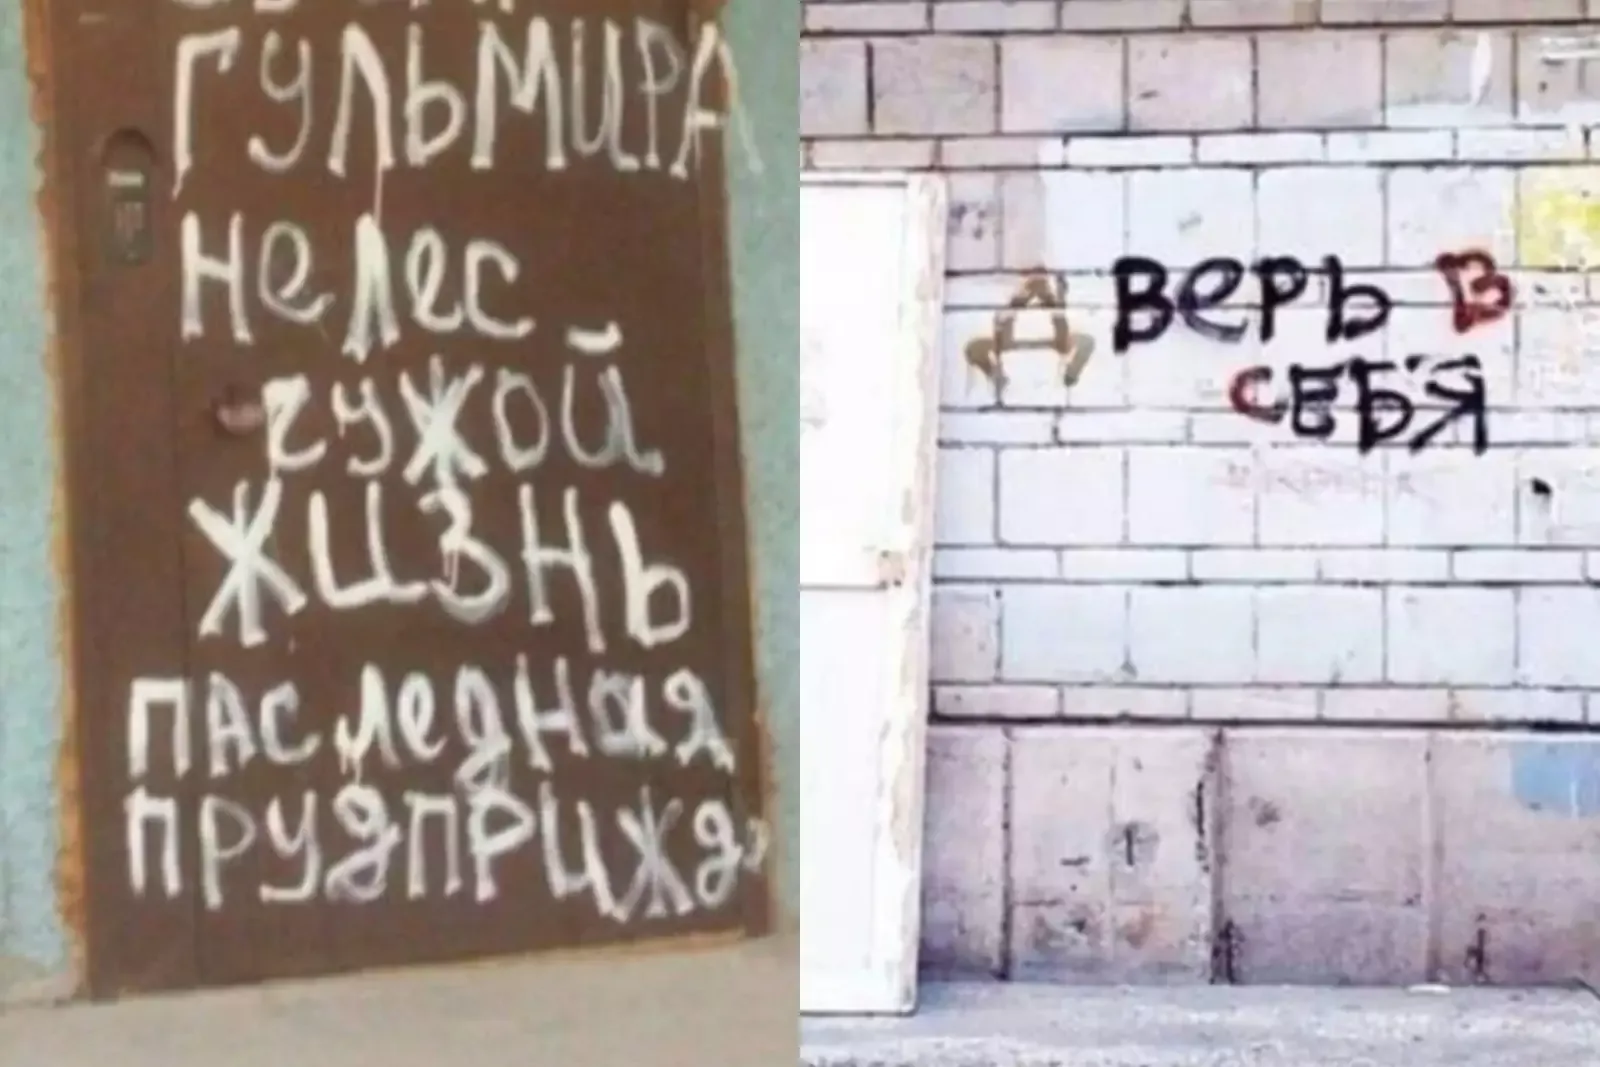 ГУЛЬМИРА
НеЛеС
ЧУЖОЙ
ЖИЗНЬ
ПАСЛеДНАЯ
Д ВеРЬ В
СЕБЯ